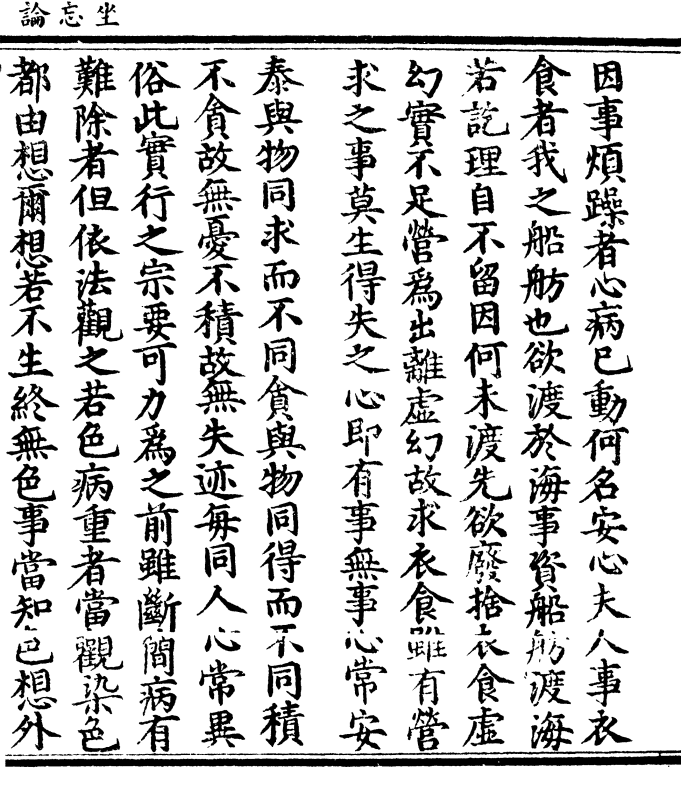 坐忘論
因事煩躁者心病已動何名安心夫人事衣
食者我之船舫也欲渡於海事資船舫渡海
若訖理自不留因何未渡先欲廢捨衣食虛
幻實不足營爲出離虛幻故求衣食雖有營
求之事莫生得失之心即有事無事心常安
泰與物同求而不同貪與物同得而不同積
不貪故無憂不積故無失迹每同人心常異
俗此實行之宗要可力爲之前雖斷簡病有
難除者但依法觀之若色病重者當觀染色
都由想爾想若不生終無色事當知色想外